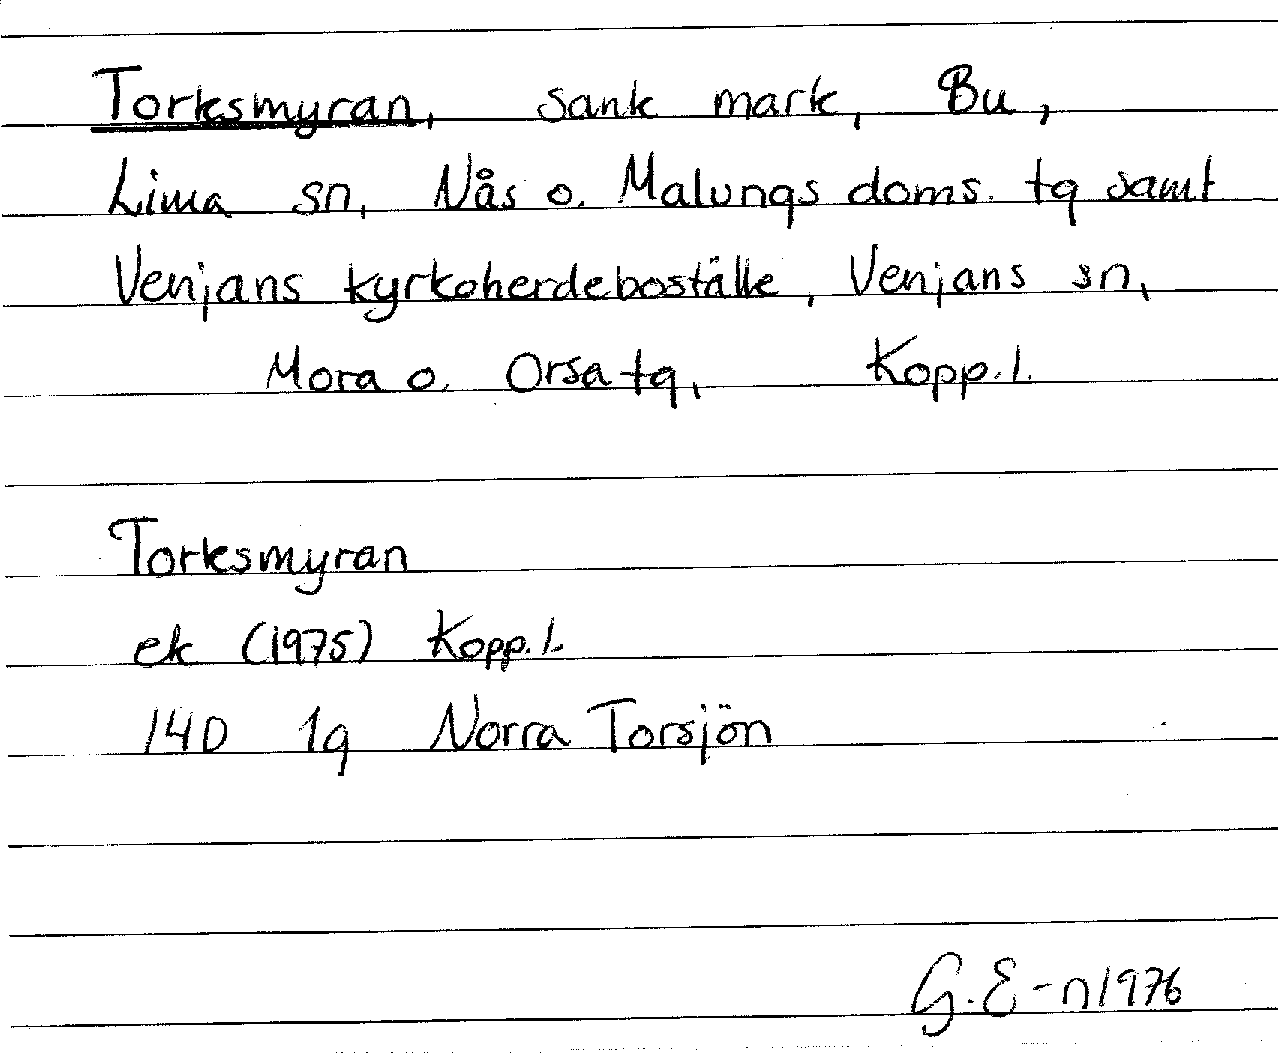 Torksmyran, sank mark, Bu,
Lima sn, Nås o. Malungs doms. tg samt
Venjans kyrkoherdeboställe, Venjans sn,
Mora o. Orsa tg, Kopp.l.
Torksmyran
ek (1975) Kopp.l.
14D 1g Norra Torsjön
G.E-n 1976